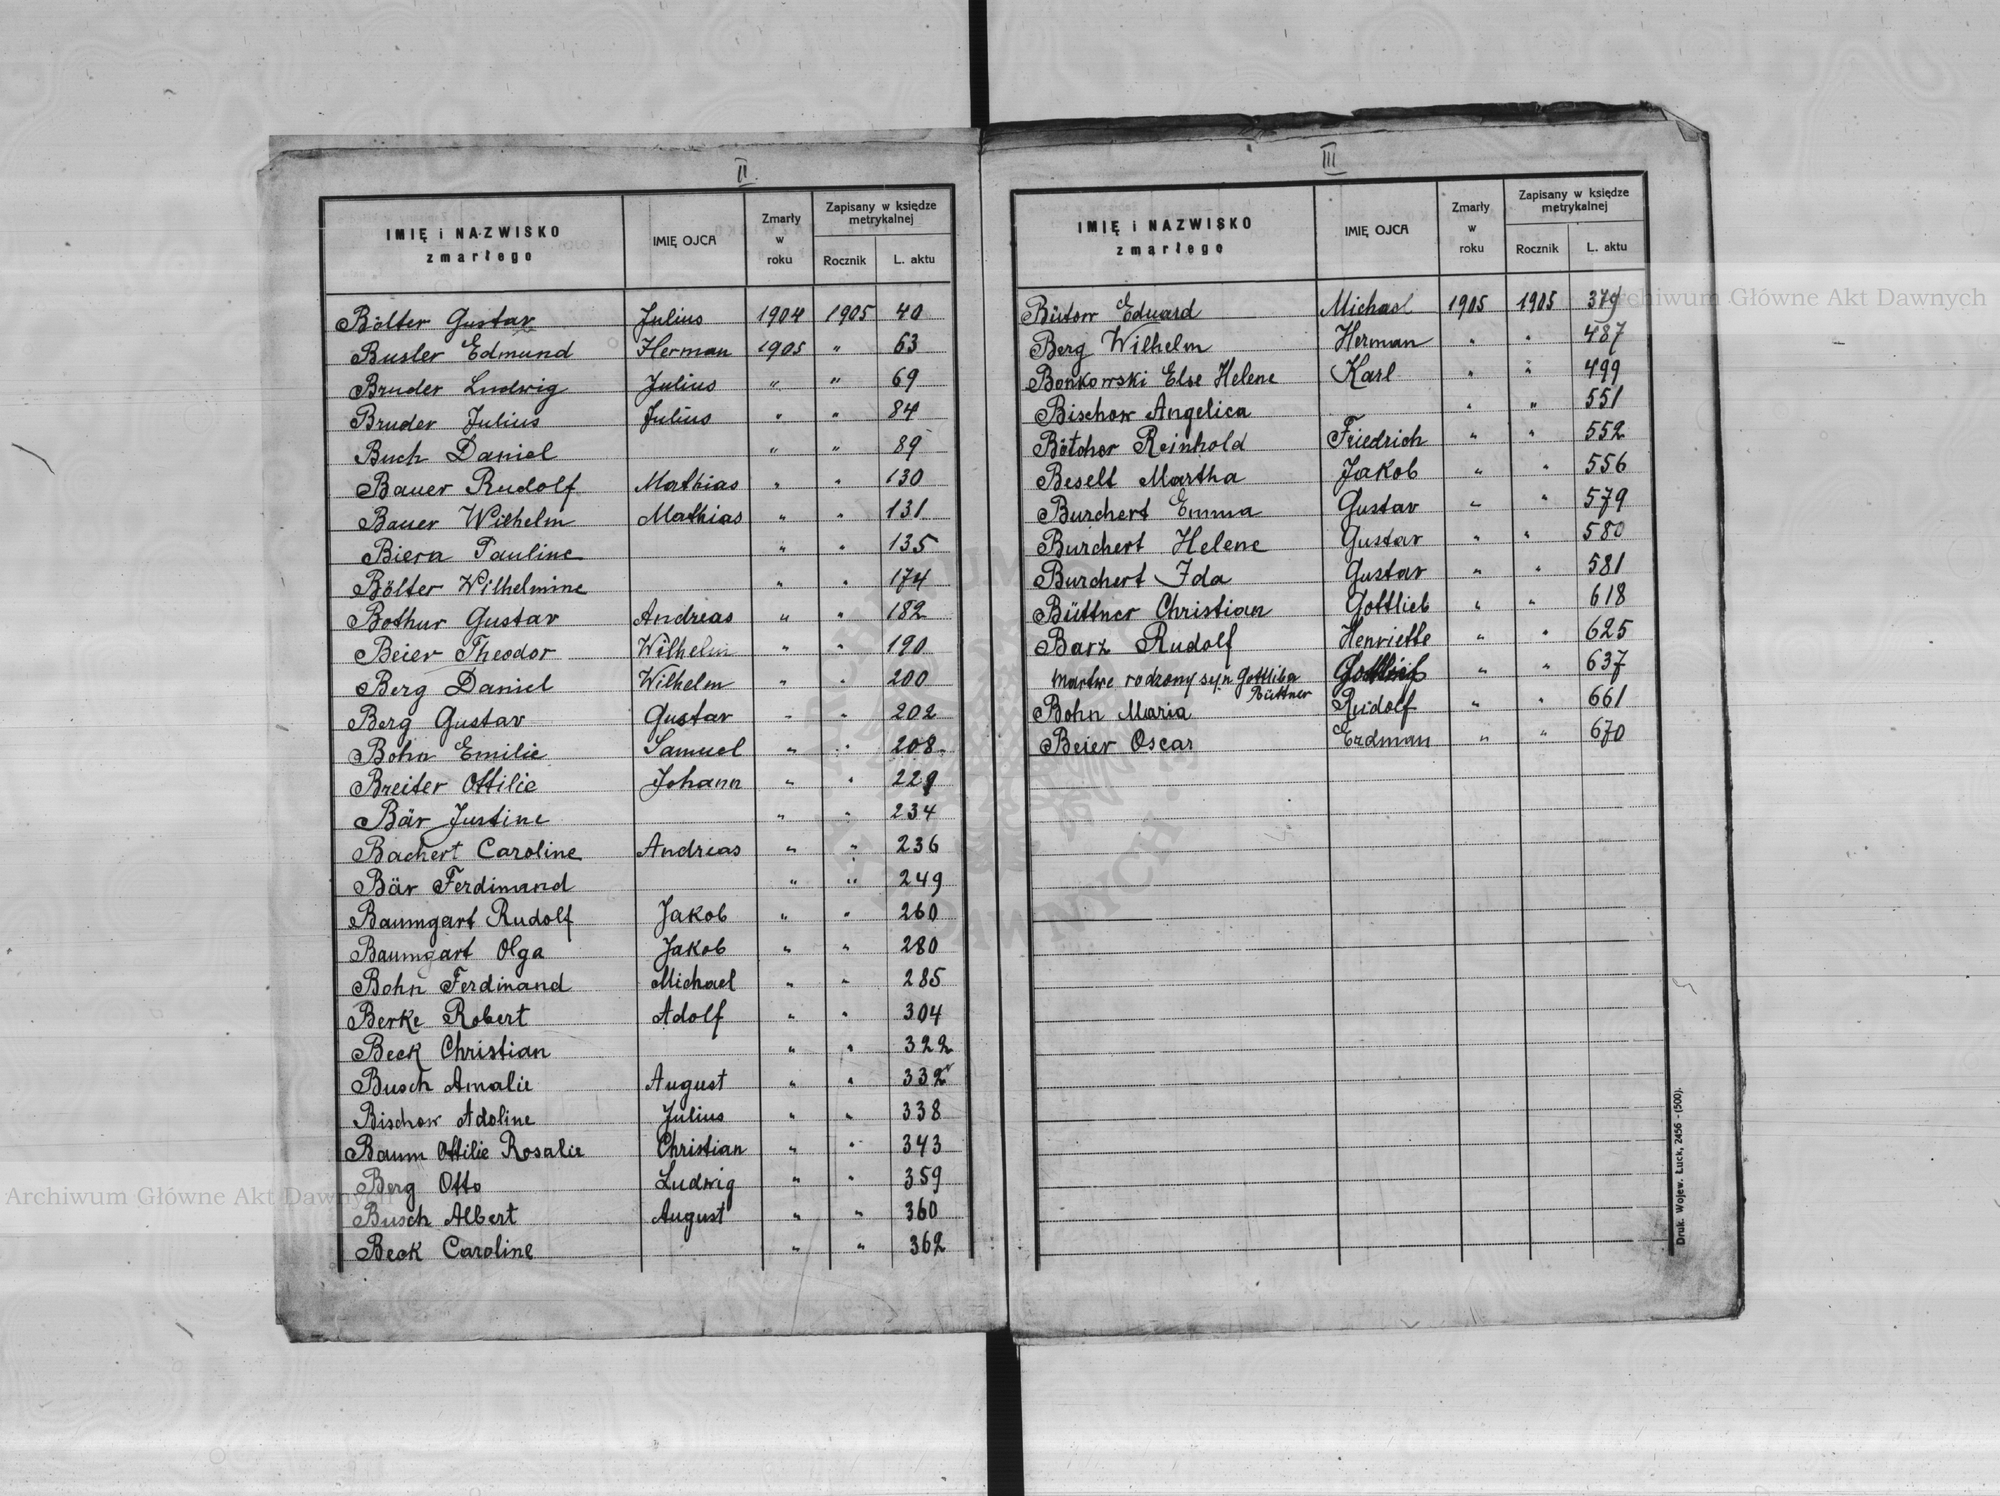 II.
IMIĘ i NAZWISKO zmarłego IMIĘ OJCA Zmarły w roku Zapisany w księdze metrykalnej Rocznik L. aktu
Bölter Gustav Julius 1904 1905 40
Busler Edmund Herman 1905 " 63
Bruder Ludwig Julius " " 69
Bruder Julius Julius " " 84
Buch Daniel " " 89
Bauer Rudolf Mathias " " 130
Bauer Wilhelm Mathias " " 131
Biera Pauline " " 135
Bölter Wilhelmine " " 174
Bothur Gustav Andreas " " 182
Beier Theodor Wilhelm " " 190
Berg Daniel Wilhelm " " 200
Berg Gustav Gustav " " 202
Bohn Emilie Samuel " " 208
Breiter Ottilie Johann " " 229
Bär Justine " " 234
Bachert Caroline Andreas " " 236
Bär Ferdinand " " 249
Baumgart Rudolf Jakob " " 260
Baumgart Olga Jakob " " 280
Bohn Ferdinand Michael " " 285
Berke Robert Adolf " " 304
Beck Christian " " 322
Busch Amalie August " " 332
Bischow Adoline Julius " " 338
Baum Ottilie Rosalie Christian " " 343
Berg Otto Ludwig " " 359
Busch Albert August " " 360
Beck Caroline " " 362
III
IMIĘ i NAZWISKO zmarłego IMIĘ OJCA Zmarły w roku Zapisany w księdze metrykalnej Rocznik L. aktu
Bütow Eduard Michael 1905 1905 379
Berg Wilhelm Herman " " 487
Bonkowski Else Helene Karl " " 499
Bischow Angelica " " 551
Bötcher Reinhold Friedrich " " 552
Beselt Martha Jakob " " 556
Burchert Emma Gustav " " 579
Burchert Helene Gustav " " 580
Burchert Ida Gustav " " 581
Büttner Christian Gottlieb " " 618
Barz Rudolf Henriette " " 625
Martwe rodzony syn Gottliba Büttner Gottlieb " " 637
Bohn Maria Rudolf " " 661
Beier Oscar Erdman " " 670
Druk. Wojew. Łuck, 2456 - (500).
Archiwum Główne Akt Dawnych
Archiwum Główne Akt Dawnych